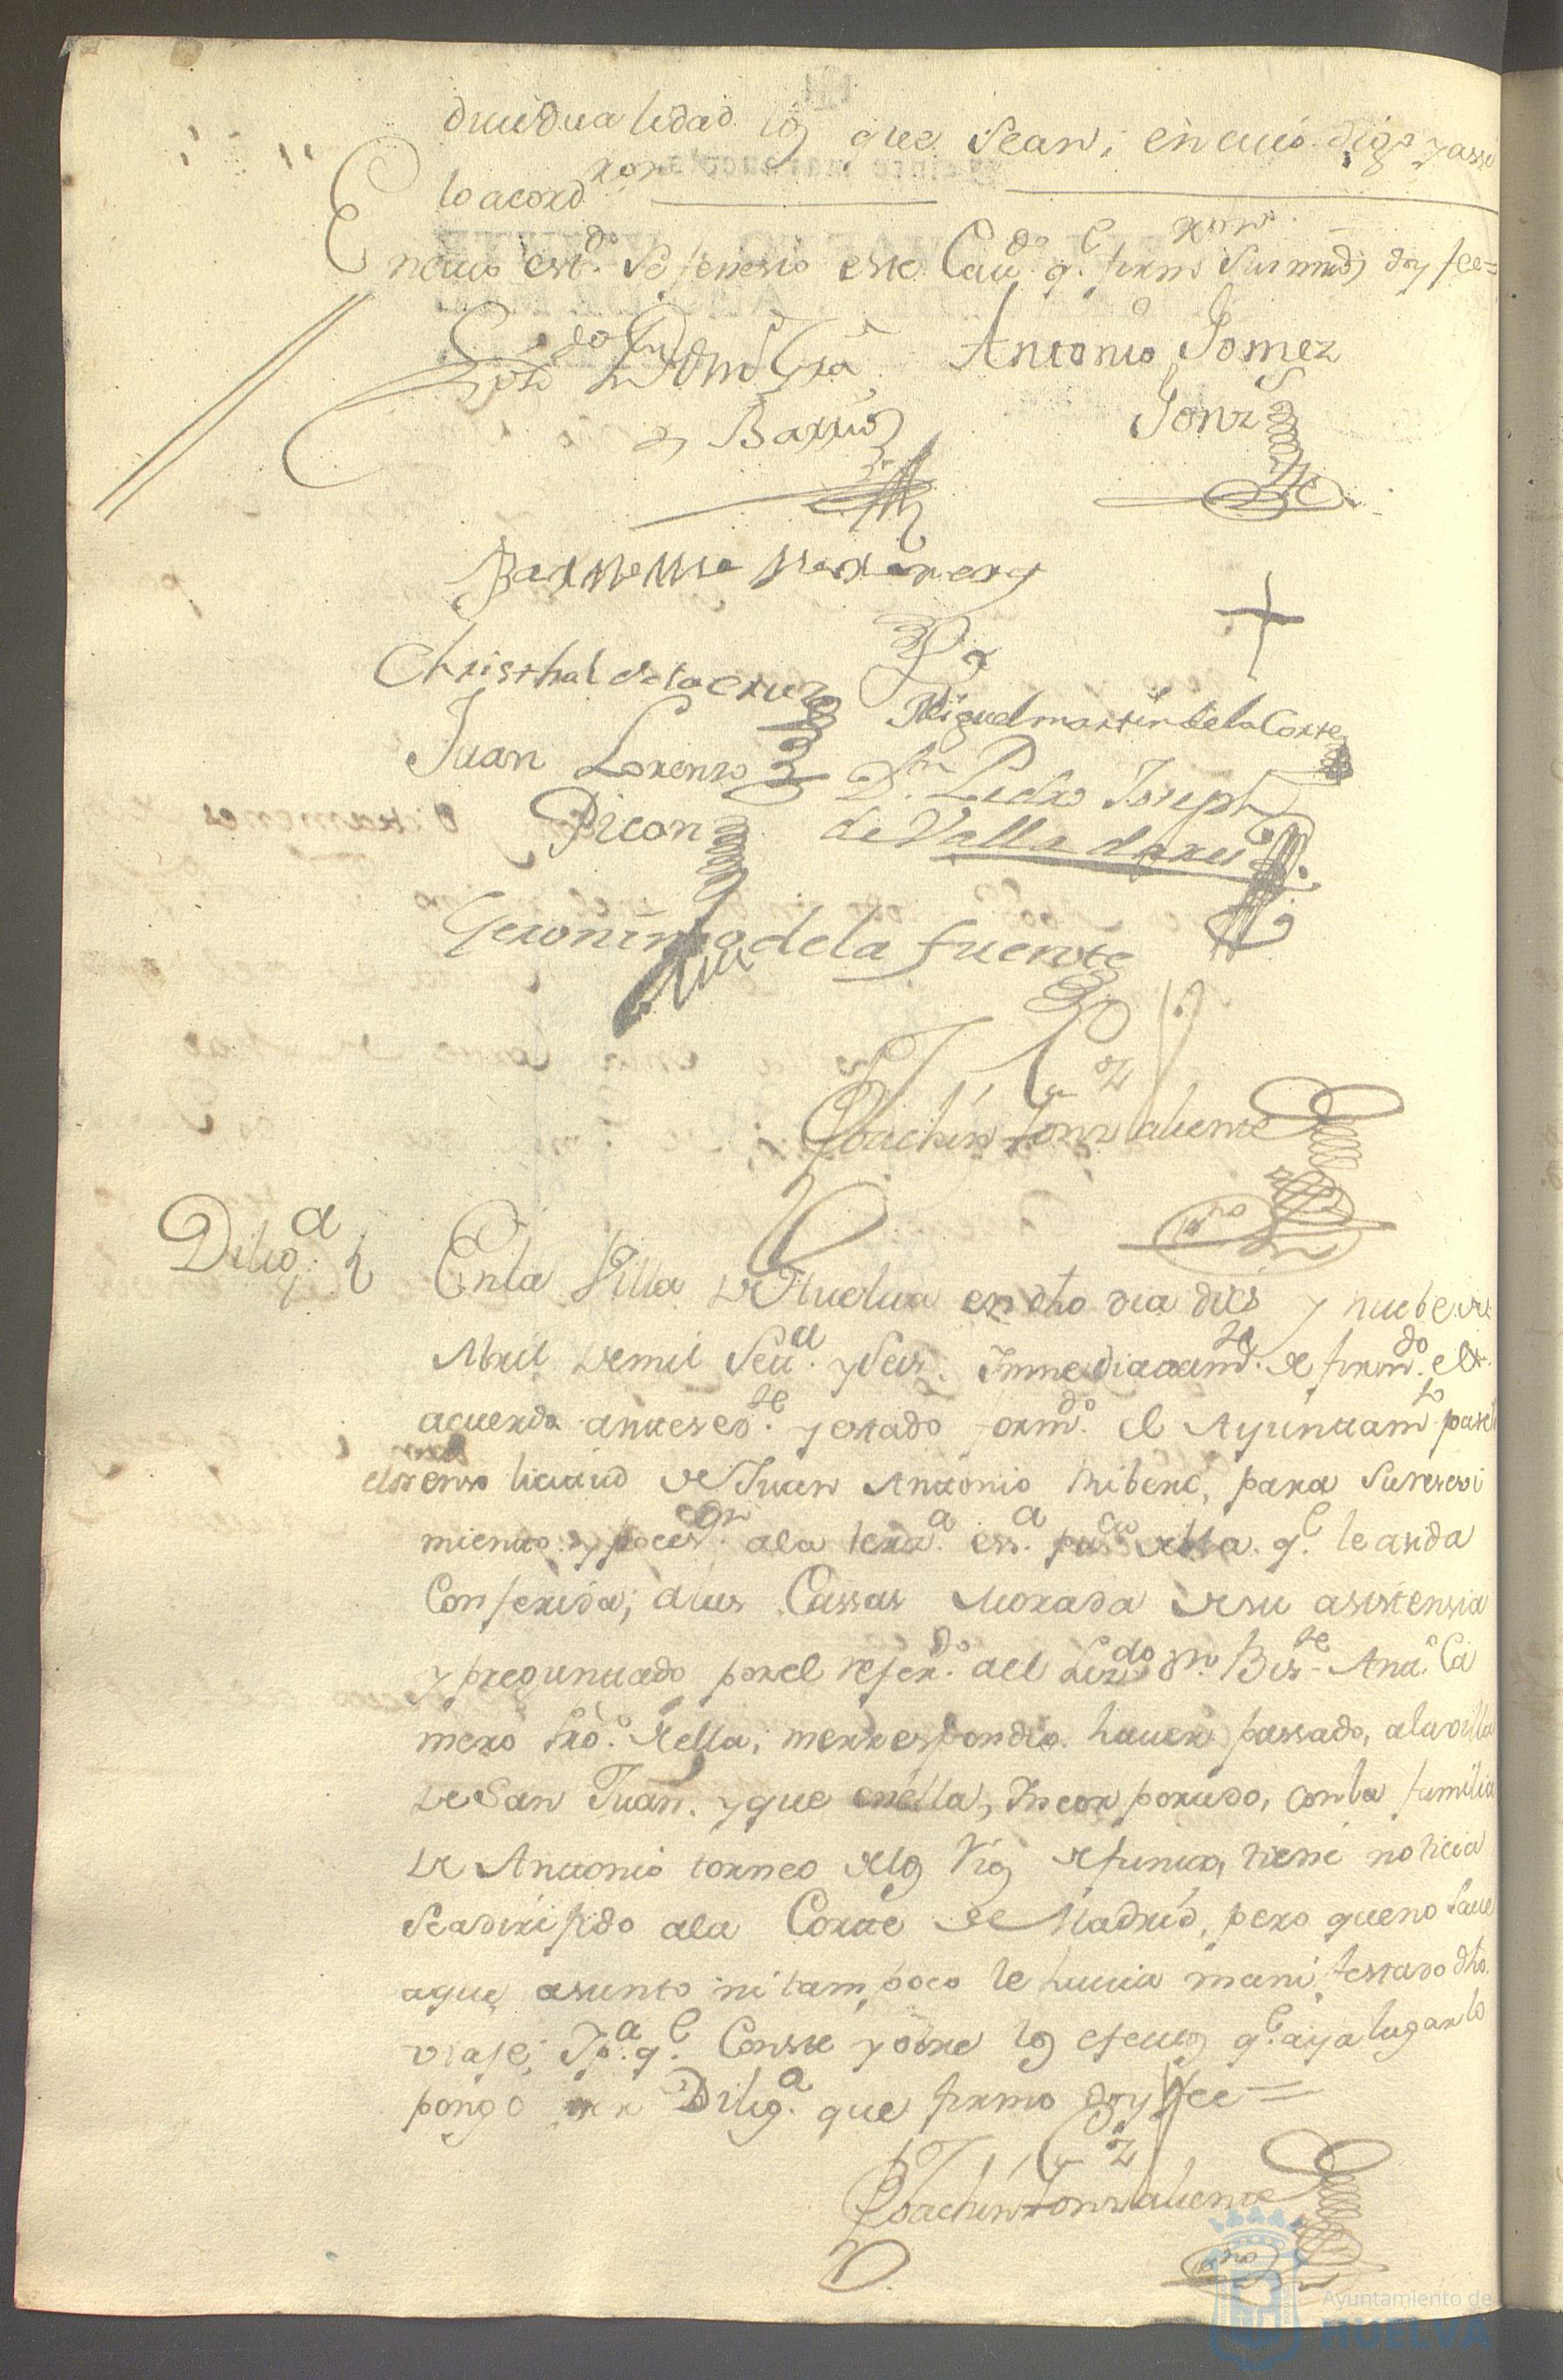 dividualidad los que sean; en cuio
lo acordron
En cuio estdo. se fenesio este Caudo. qe. firmron sus mrds doy fee=
Antonio Gomez
Gonz
de Barrios
Christhal de la cruz
Miguel martin de la Corte
Juan Lorenzo
Picon
Dn. Pedro Joseph
de Valladares
Geronimo de la fuente
Joachin Gonz Valiente
Diliga.
En la Villa de Huelua en dho dia dies y nuebe de
Abril de mil Seta. y Seis. Immediatamte. de firmdo. el
acuerdo antesedte. y estado formdo. el Ayuntamto pasé
licitud de Juan Antonio Ribero, para su resevi
miento y pocesn. a la terza. essa. puca de esta. qe. le anda
Conferida; a las Cassas Morada de su asistensia
y preguntado por el referdo. a el Lizdo Dn Bizte Anto. Ca
mero Pro. de ella; me respondio hauer passado, a la villa
de San Juan. y que en ella, Incorporado, con la familia
de Antonio torneo de los Rios difunto, tiene noticia
Se a dirijido a la Corte de Madrid, pero que no saue
a que asunto ni tampoco le hauia manifestado dho.
viaje; Y pa. qe. Conste y obre los efectos qe. aya lugar lo
pongo por Diliga. que firmo doy fee=
Joachin Gonz Valiente
Ayuntamiento de
HUELVA